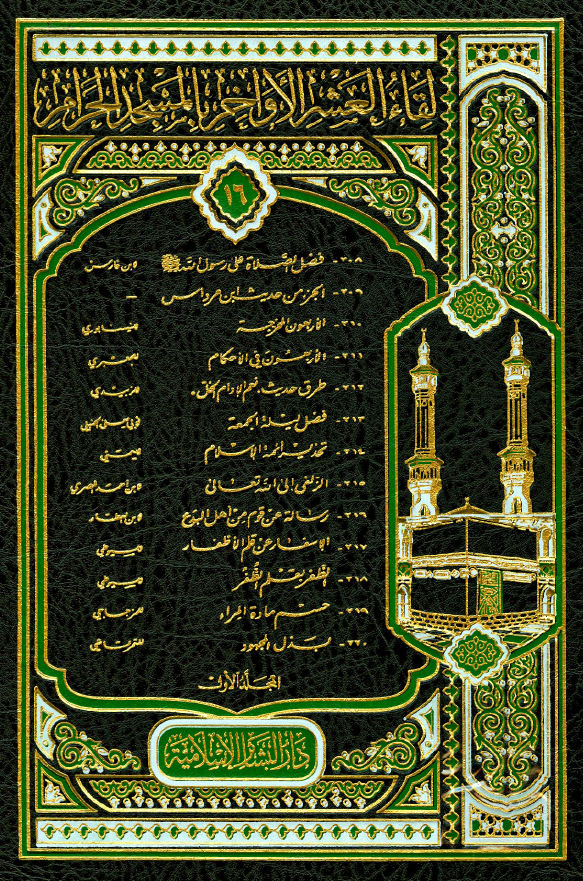 لقاء العشر الأواخر بالمسجد الحرام
١٦
٣٠٨ - فضل الصلاة على رسول الله ﷺ لابن فارس
٣٠٩ - الجزء من حديث ابن مرداس —
٣١٠ - الأربعون المخرجة
٣١١ - الأربعون في الأحكام
٣١٢ - طرق حديث: نعم الإدام الخل. للزبيدي
٣١٣ - فضل ليلة الجمعة
٣١٤ - تحذير أئمة الإسلام
٣١٥ - الزلفى إلى الله تعالى لابن أحمد المصري
٣١٦ - رسالة عن قوم من أهل البدع لابن العطار
٣١٧ - الإسفار عن قلم الأظفار للسيوطي
٣١٨ - الظفر بقلم الظفر للسيوطي
٣١٩ - حسم مادة المراء
٣٢٠ - بذل المجهود للتمرتاشي
المجلد الأول
دار البشائر الإسلامية